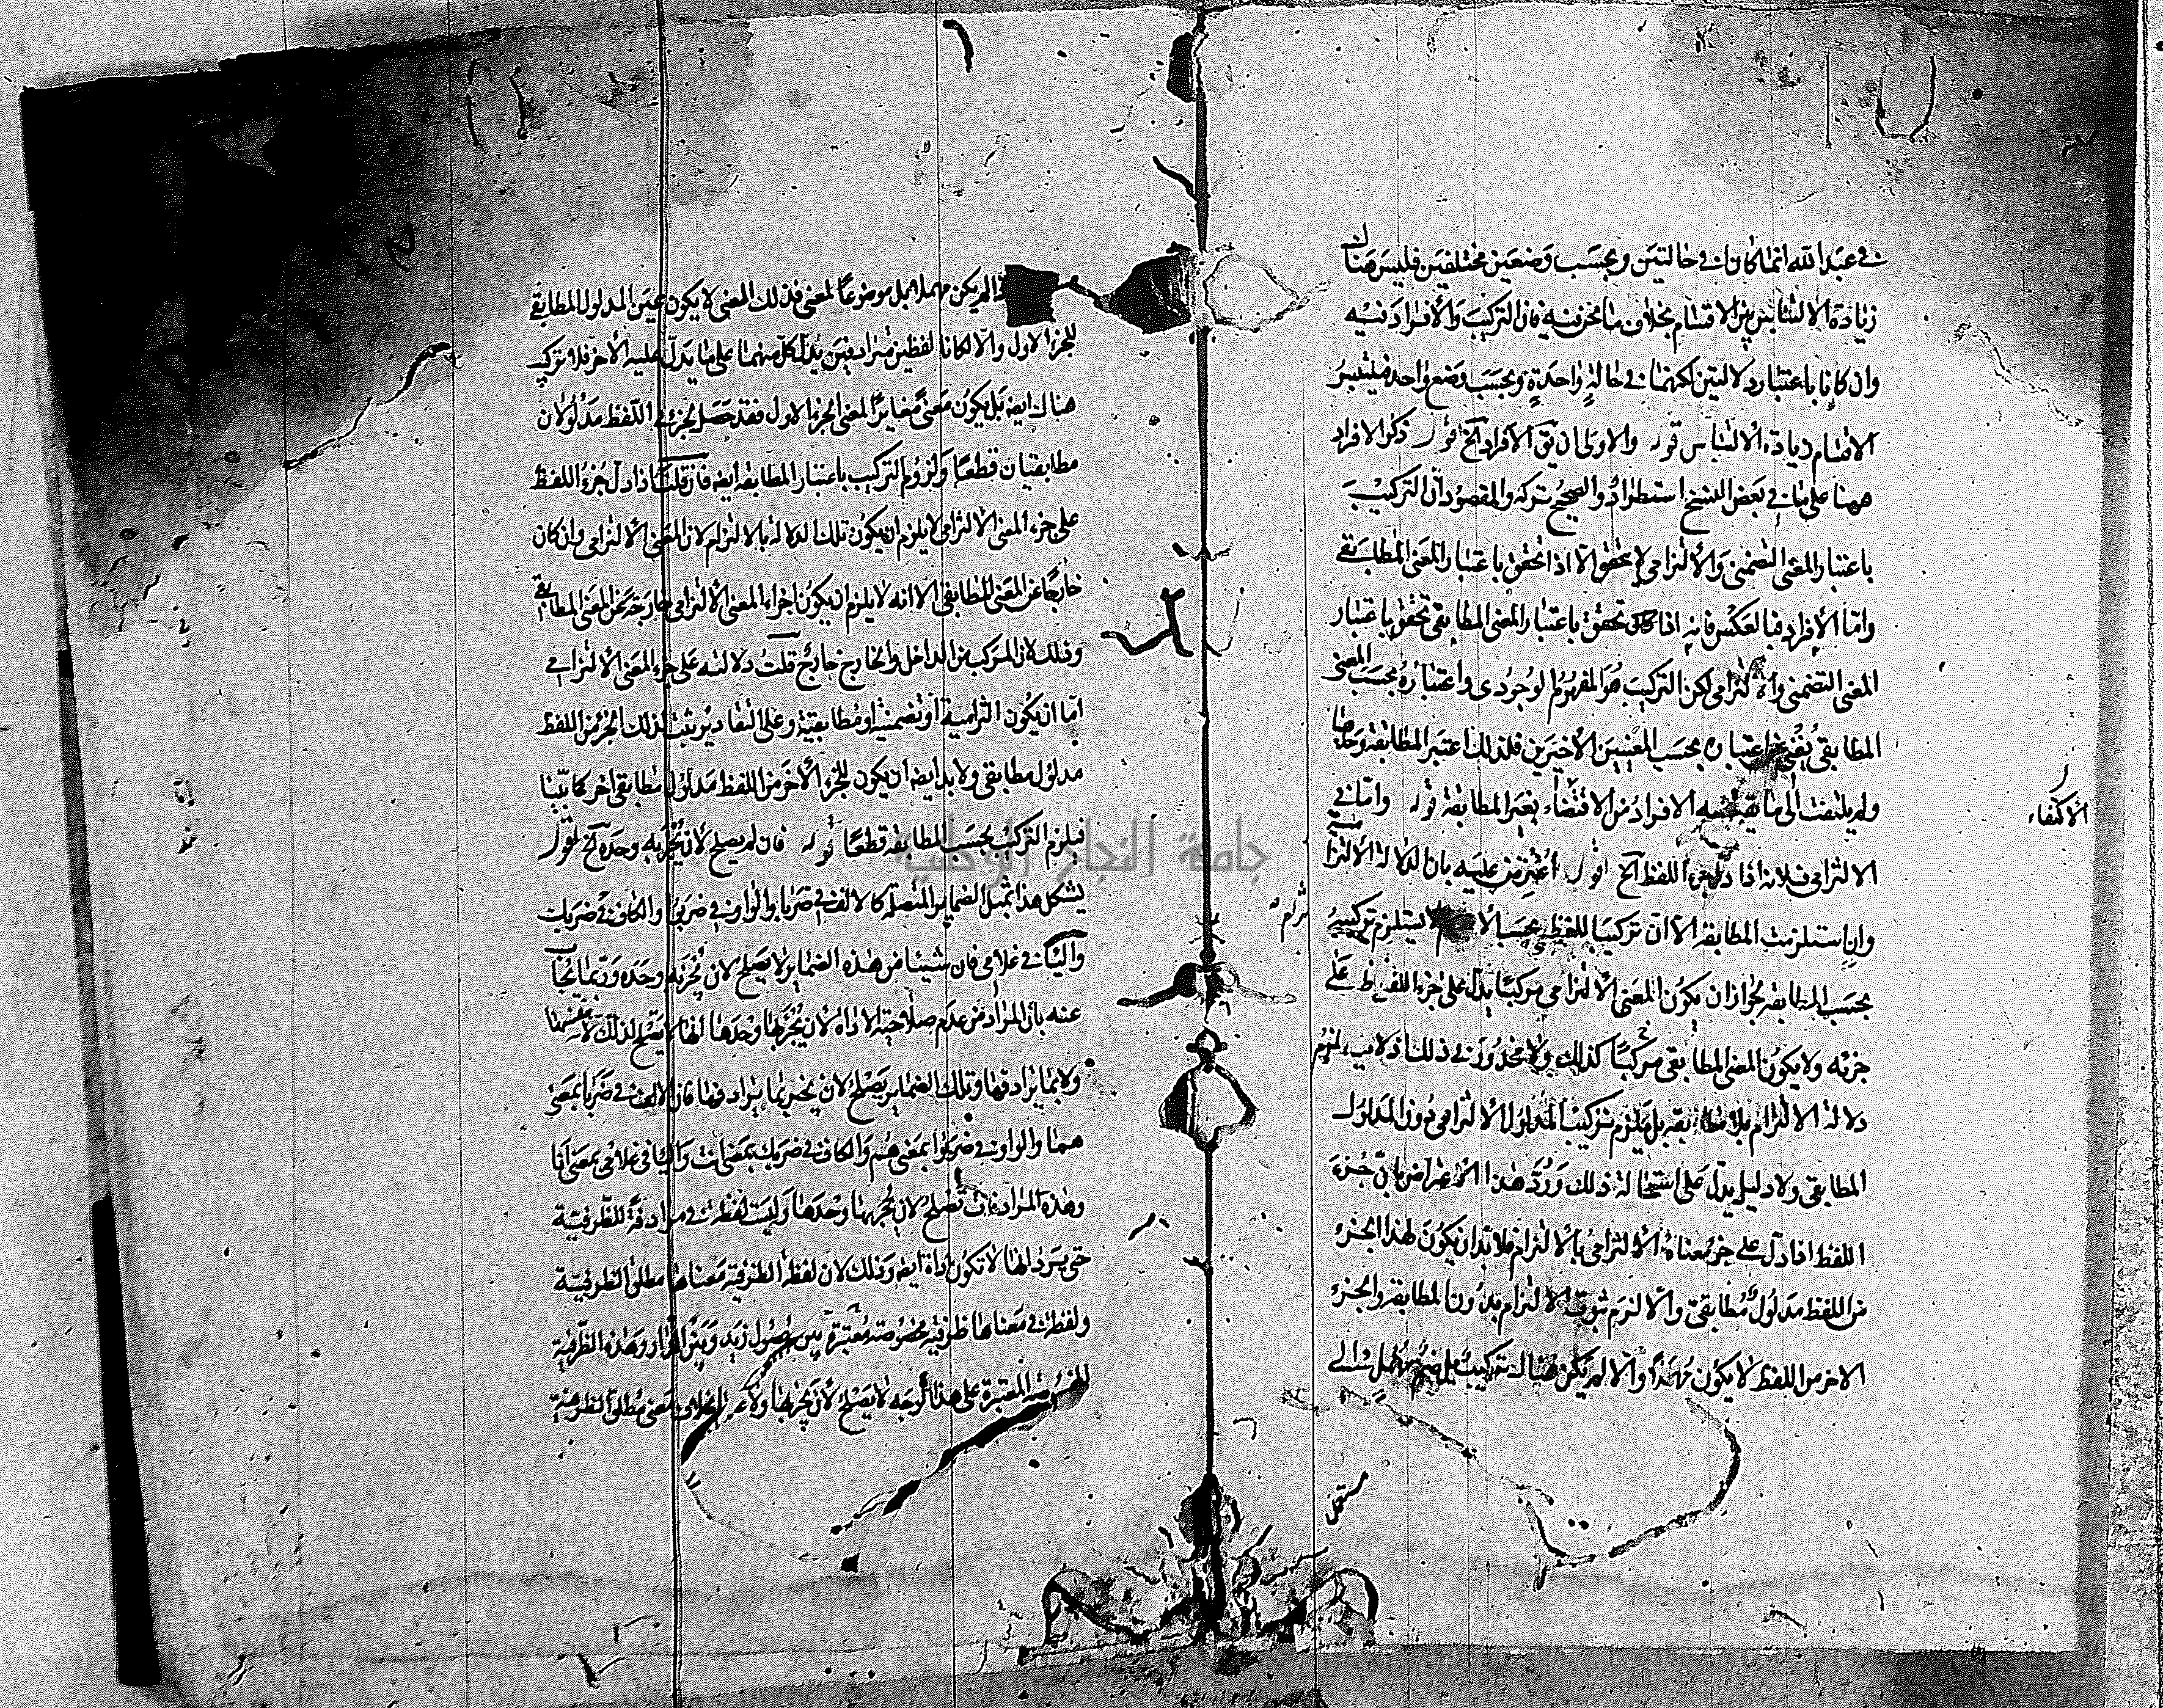 في عبد الله انما كانا في حالتين وبحسب وضعين مختلفين فليس هناك
زيادة الالتباس بين الاقسام بخلاف ما نحن فيه فان التركيب والأفراد فيه
وان كانا باعتبار دلالتين لكنهما في حالة واحدة وبحسب وضع واحد فيلتبس
الاقسام زيادة الالتباس قوله والاولى ان يق الافراد الخ اقول ذكر الافراد
ههنا على ما في بعض النسخ استطراد والصحيح تركه والمقصود أن التركيب
باعتبار المعنى التضمني والألتزامي لا يتحقق الا اذا تحقق باعتبار المعنى المطابقي
واما الأفراد فبالعكس فانه اذا تحقق باعتبار المعنى المطابقي تحقق باعتبار
المعنى التضمني والألتزامي لكن التركيب هو المفهوم الوجودي واعتباره بحسب المعنى
المطابقي يغني عن اعتباره بحسب المعنيين الأخيرين فلذلك اعتبر المطابقة وحدها
ولم يلتفت الى ما يقتضيه الافراد من الاقتضاء بغير المطابقة قوله واما في
الاكتفاء
الالتزامي فلانه اذا دل جزء اللفظ الخ اقول اعترض عليه بان الدلالة الالتزامية
وان استلزمت المطابقة الا أن تركيب اللفظ بحسب لا يستلزم تركيبه
بحسب المطابقة لجواز ان يكون المعنى الألتزامي مركبا يدل على جزء اللفظ على
جزئه ولا يكون المعنى المطابقي مركبا كذلك ولا محذور في ذلك اذ لا يلزم
دلالة الالتزام بلا مطابقة بل يلزم تركيب المدلول الألتزامي دون المدلول
المطابقي ولا دليل يدل على استحالة ذلك ورد هذا الأعتراض بان جزء
اللفظ اذا دل على جزء معناه الألتزامي بالألتزام فلا بد ان يكون لهذا الجزء
من اللفظ مدلول مطابقي والا لزم ثبوت الالتزام بدون المطابقة والجزء
الاخر من اللفظ لا يكون مهملا والا لم يكن هناك تركيب بل ضم مهمل الى
مستعمل
لم يكن مهملا بل موضوعا لمعنى فذلك المعنى لا يكون عين المدلول المطابقي
للجزء الاول والا لكانا لفظين مترادفين يدل كل منهما على ما يدل عليه الأخر فلا تركيب
هناك ايضا بل يكون معنى مغايرا لمعنى الجزء الاول فقد حصل لجزئي اللفظ مدلولان
مطابقيان قطعا ولزوم التركيب باعتبار المطابقة ايضا فان قلت اذا دل جزء اللفظ
على جزء المعنى الالتزامي لا يلزم ان يكون تلك الدلالة بالالتزام لان المعنى الألتزامي وان كان
خارجا عن المعنى المطابقي الا انه لا يلزم ان يكون اجزاء المعنى الألتزامي خارجة عن المعنى المطابقي
وذلك لان المركب من الداخل والخارج خارج قلت دلالته على جزء المعنى الألتزامي
اما ان يكون التزامية او تضمنية او مطابقية وعلى التقادير يثبت لذلك الجزء من اللفظ
مدلول مطابقي ولا بد ايضا ان يكون للجزء الأخر من اللفظ مدلول مطابقي اخر كما بينا
فيلزم التركيب بحسب المطابقة قطعا قوله فان لم يصلح لأن يخبر به وحده الخ اقول
يشكل هذا بمثل الضماير المتصلة كالالف في ضربا والواو في ضربوا والكاف في ضربك
والياء في غلامي فان شيئا من هذه الضماير لا يصلح لان يخبر به وحده وربما يجاب
عنه بأن المراد من عدم صلاحية الاداة لأن يخبر بها وحدها انها لا يصلح لذلك لا بنفسها
ولا بما يرادفها وتلك الضماير يصلح لأن يخبر بما يرادفها فان الألف في ضربا بمعنى
هما والواو في ضربوا بمعنى هم والكاف في ضربك بمعنى انت والياء في غلامي بمعنى أنا
وهذه المرادفات تصلح لان يخبر بها وحدها وليست لفظة في مرادفة للظرفية
حتى يرد انها لا تكون اداة ايضا وذلك لان لفظ الظرفية معناها مطلق الظرفية
ولفظة في معناها ظرفية مخصوصة معتبرة بين حصول زيد وبين الدار وهذه الظرفية
المخصوصة المعتبرة على هذا الوجه لا يصلح لأن يخبر بها ولا عنها بخلاف معنى مطلق الظرفية